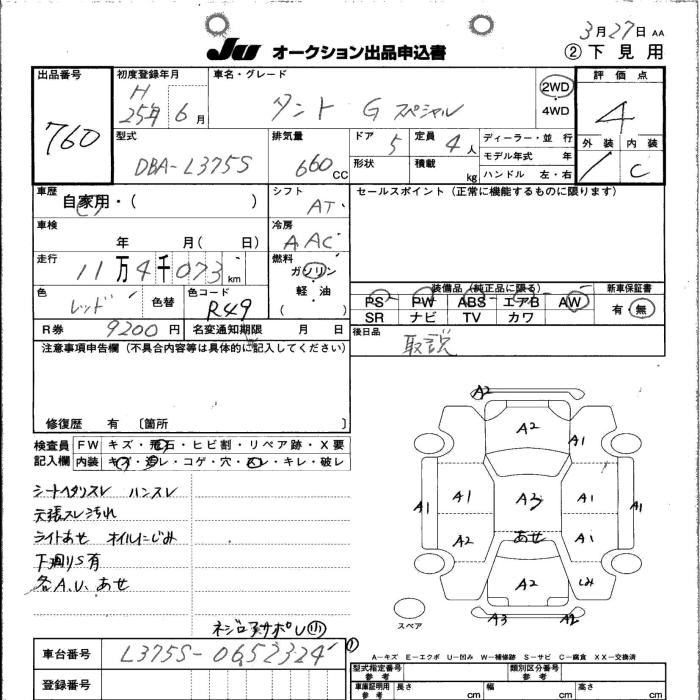 3月27日 AA
JU オークション出品申込書
② 下見用
出品番号 760
初度登録年月 H 25年 6月
車名・グレード タント G スペシャル
2WD
4WD
評価点 4
外装 内装 C
型式 DBA-L375S
排気量 660 CC
ドア 5
定員 4人
ディーラー・並行
形状
積載 kg
モデル年式 年
ハンドル 左・右
車歴 自家用・( )
シフト AT
セールスポイント (正常に機能するものに限ります)
車検 年 月( 日)
冷房 AAC
走行 11万4千073 km
燃料 ガソリン
軽・油
( )
色 レッド
色替
色コード R49
装備品 (純正品に限る)
新車保証書
PS PW ABS エアB AW
有・無
SR ナビ TV カワ
R券 9200円
名変通知期限 月 日
後日品 取説
注意事項申告欄 (不具合内容等は具体的に記入してください)
修復歴 有 〔箇所 〕
検査員記入欄
FW キズ・飛石・ヒビ割・リペア跡・X要
内装 キズ・汚レ・コゲ・穴・スレ・キレ・破レ
シートヘタリスレ ハンスレ
天張スレ汚れ
ライトあせ オイルにじみ
下廻りS有
各A.U.あせ
A2
A2
A1
A1
A1
A3
A1
A1
A2
あせ
A1
A2
しみ
A3
A2
スペア
車台番号 L375S-0652324
登録番号
A-キズ E-エクボ U-凹み W-補修跡 S-サビ C-腐食 XX-交換済
型式指定番号 参考
類別区分番号 参考
車庫証明用 参考
長さ cm
幅 cm
高さ cm